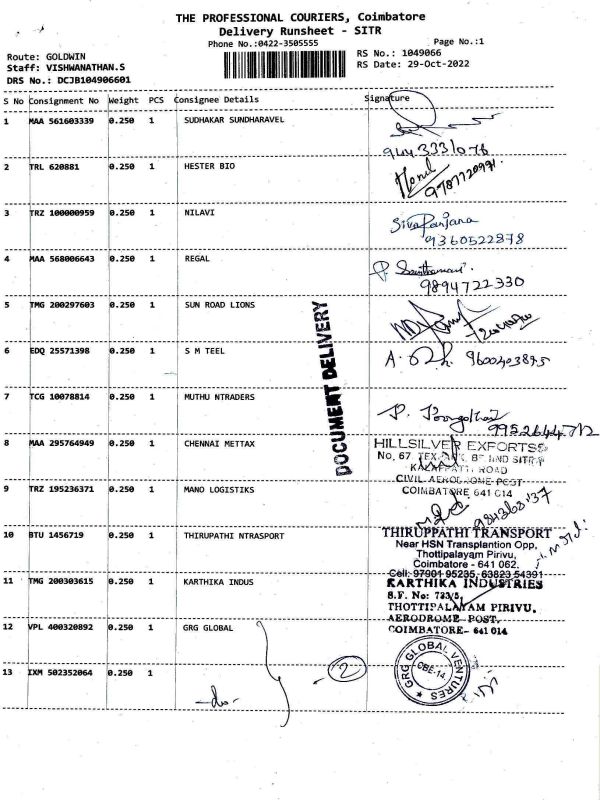 THE PROFESSIONAL COURIERS, Coimbatore
Delivery Runsheet - SITR
Phone No.:0422-3505555
Page No.:1
Route: GOLDWIN
RS No.: 1049066
Staff: VISHWANATHAN.S
RS Date: 29-Oct-2022
DRS No.: DCJB104906601
S No Consignment No Weight PCS Consignee Details Signature
1 MAA 561603339 0.250 1 SUDHAKAR SUNDHARAVEL
9443331076
2 TRL 620881 0.250 1 HESTER BIO
9787720991
3 TRZ 100000959 0.250 1 NILAVI
SivaRanjana
9360522878
4 MAA 568006643 0.250 1 REGAL
9894722330
5 TMG 200297603 0.250 1 SUN ROAD LIONS
6 EDQ 25571398 0.250 1 S M TEEL
9600403875
DOCUMENT DELIVERY
7 TCG 10078814 0.250 1 MUTHU NTRADERS
8 MAA 295764949 0.250 1 CHENNAI METTAX
HILLSILVER EXPORTS
No, 67, 
KALAPPATTI ROAD
CIVIL AERODROME POST
COIMBATORE 641 014
9 TRZ 195236371 0.250 1 MANO LOGISTIKS
10 BTU 1456719 0.250 1 THIRUPATHI NTRASPORT
THIRUPPATHI TRANSPORT
Near HSN Transplantion Opp,
Thottipalayam Pirivu,
Coimbatore - 641 062.
Cell: 97901 95235, 63823 54391
11 TMG 200303615 0.250 1 KARTHIKA INDUS
KARTHIKA INDUSTRIES
S.F. No: 733/5,
THOTTIPALAYAM PIRIVU,
AERODROME POST,
COIMBATORE- 641 014
12 VPL 400320892 0.250 1 GRG GLOBAL
GRG GLOBAL VENTURES
CBE-14
13 IXM 502352064 0.250 1
-do-
2